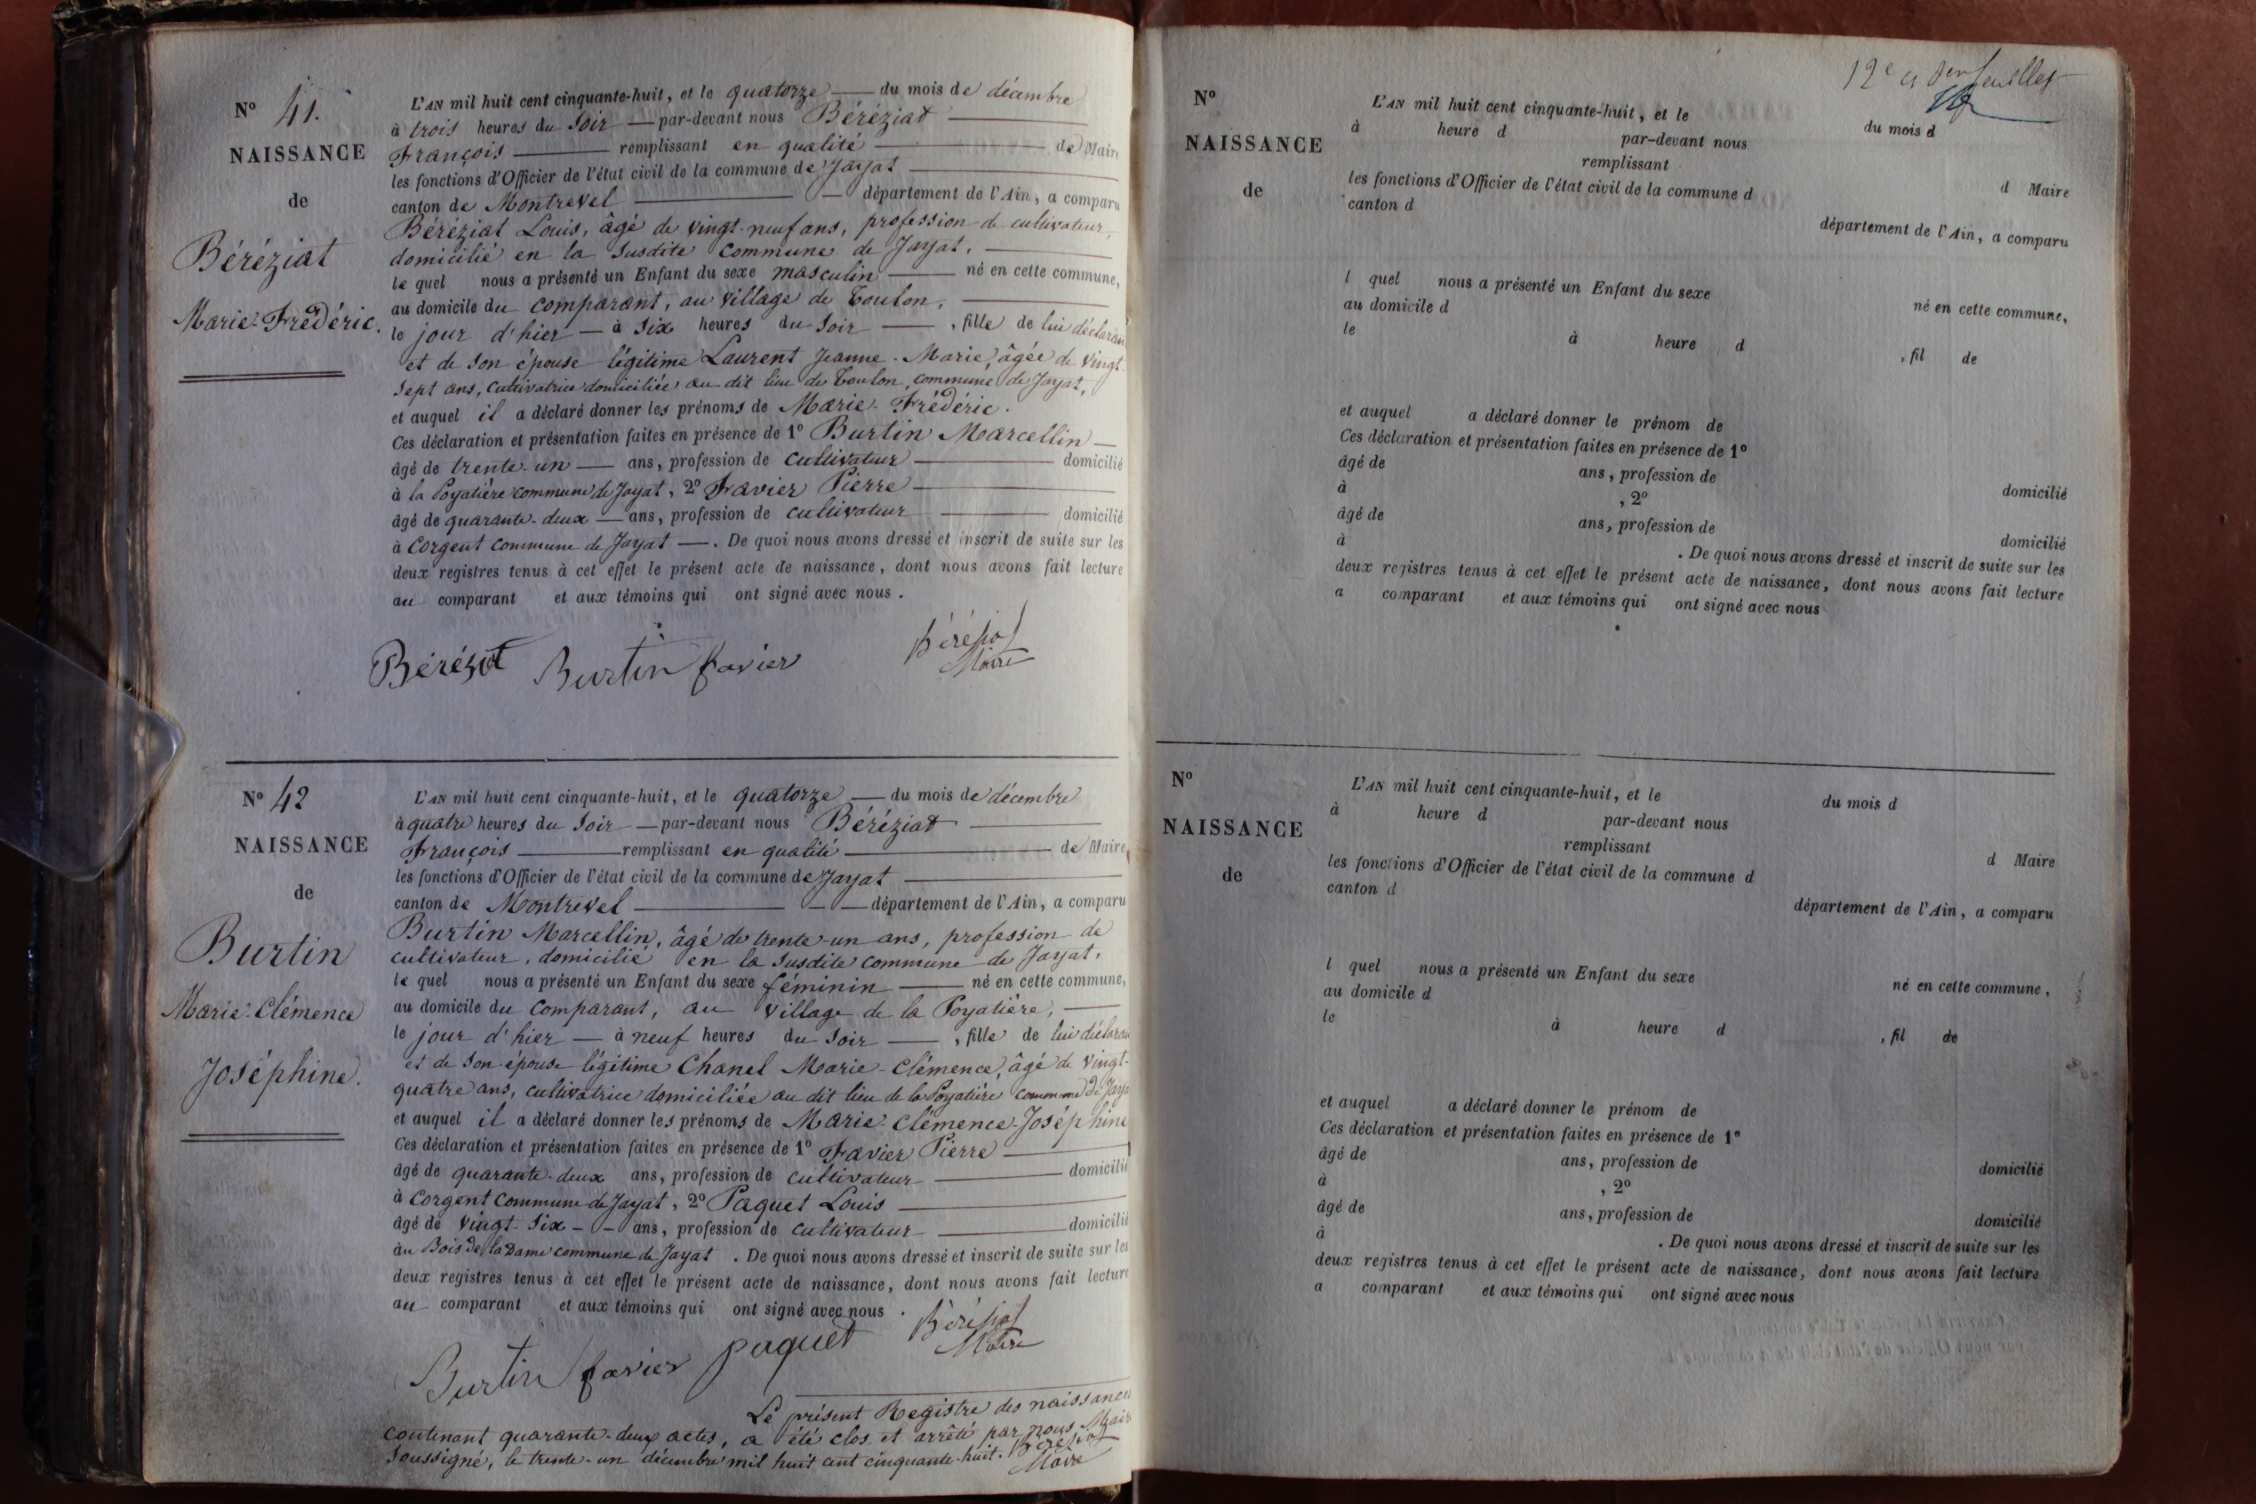 N° 41.
NAISSANCE
de
Béréziat
Marie-Frédéric.
L'AN mil huit cent cinquante-huit, et le quatorze du mois de décembre
à trois heures du soir par-devant nous Béréziat
François remplissant en qualité de Maire
les fonctions d'Officier de l'état civil de la commune de Jayat
canton de Montrevel département de l'Ain, a comparu
Béréziat Louis, âgé de vingt-neuf ans, profession de cultivateur,
domicilié en la susdite commune de Jayat,
le quel nous a présenté un Enfant du sexe masculin né en cette commune,
au domicile du comparant, au village de Toulon,
le jour d'hier à six heures du soir, fille de lui déclarant
et de son épouse légitime Laurent Jeanne-Marie, âgée de vingt-
sept ans, cultivatrice domiciliée au dit lieu de Toulon, commune de Jayat,
et auquel il a déclaré donner les prénoms de Marie-Frédéric.
Ces déclaration et présentation faites en présence de 1° Burtin Marcellin
âgé de trente-un ans, profession de cultivateur domicilié
à la Poyatière commune de Jayat, 2° Favier Pierre
âgé de quarante-deux ans, profession de cultivateur domicilié
à Corgent commune de Jayat. De quoi nous avons dressé et inscrit de suite sur les
deux registres tenus à cet effet le présent acte de naissance, dont nous avons fait lecture
au comparant et aux témoins qui ont signé avec nous.
Bérézat Burtin favier Béréziat
Maire
N° 42
NAISSANCE
de
Burtin
Marie-Clémence
Joséphine.
L'AN mil huit cent cinquante-huit, et le quatorze du mois de décembre
à quatre heures du soir par-devant nous Béréziat
François remplissant en qualité de Maire
les fonctions d'Officier de l'état civil de la commune de Jayat
canton de Montrevel département de l'Ain, a comparu
Burtin Marcellin, âgé de trente-un ans, profession de
cultivateur, domicilié en la susdite commune de Jayat,
le quel nous a présenté un Enfant du sexe féminin né en cette commune,
au domicile du comparant, au village de la Poyatière,
le jour d'hier à neuf heures du soir, fille de lui déclarant
et de son épouse légitime Chanel Marie-Clémence, âgé de vingt-
quatre ans, cultivatrice domiciliée au dit lieu de la Poyatière commune de Jayat
et auquel il a déclaré donner les prénoms de Marie-Clémence-Joséphine
Ces déclaration et présentation faites en présence de 1° Favier Pierre
âgé de quarante-deux ans, profession de cultivateur domicilié
à Corgent commune de Jayat, 2° Paquet Louis
âgé de vingt-six ans, profession de cultivateur domicilié
au Bois de la Dame commune de Jayat. De quoi nous avons dressé et inscrit de suite sur les
deux registres tenus à cet effet le présent acte de naissance, dont nous avons fait lecture
au comparant et aux témoins qui ont signé avec nous.
Burtin favier paquet Béréziat
Maire
Le présent Registre des naissances
contenant quarante-deux actes, a été clos et arrêté par nous Maire
soussigné, le trente-un décembre mil huit cent cinquante-huit. Béréziat
Maire
12e et der feuillet
N°
NAISSANCE
de
L'AN mil huit cent cinquante-huit, et le du mois d
à heure d par-devant nous
remplissant d Maire
les fonctions d'Officier de l'état civil de la commune d
canton d département de l'Ain, a comparu
l quel nous a présenté un Enfant du sexe né en cette commune,
au domicile d
le à heure d , fil de
et auquel a déclaré donner le prénom de
Ces déclaration et présentation faites en présence de 1°
âgé de ans, profession de domicilié
à , 2°
âgé de ans, profession de domicilié
à . De quoi nous avons dressé et inscrit de suite sur les
deux registres tenus à cet effet le présent acte de naissance, dont nous avons fait lecture
a comparant et aux témoins qui ont signé avec nous
N°
NAISSANCE
de
L'AN mil huit cent cinquante-huit, et le du mois d
à heure d par-devant nous
remplissant d Maire
les fonctions d'Officier de l'état civil de la commune d
canton d département de l'Ain, a comparu
l quel nous a présenté un Enfant du sexe né en cette commune,
au domicile d
le à heure d , fil de
et auquel a déclaré donner le prénom de
Ces déclaration et présentation faites en présence de 1°
âgé de ans, profession de domicilié
à , 2°
âgé de ans, profession de domicilié
à . De quoi nous avons dressé et inscrit de suite sur les
deux registres tenus à cet effet le présent acte de naissance, dont nous avons fait lecture
a comparant et aux témoins qui ont signé avec nous